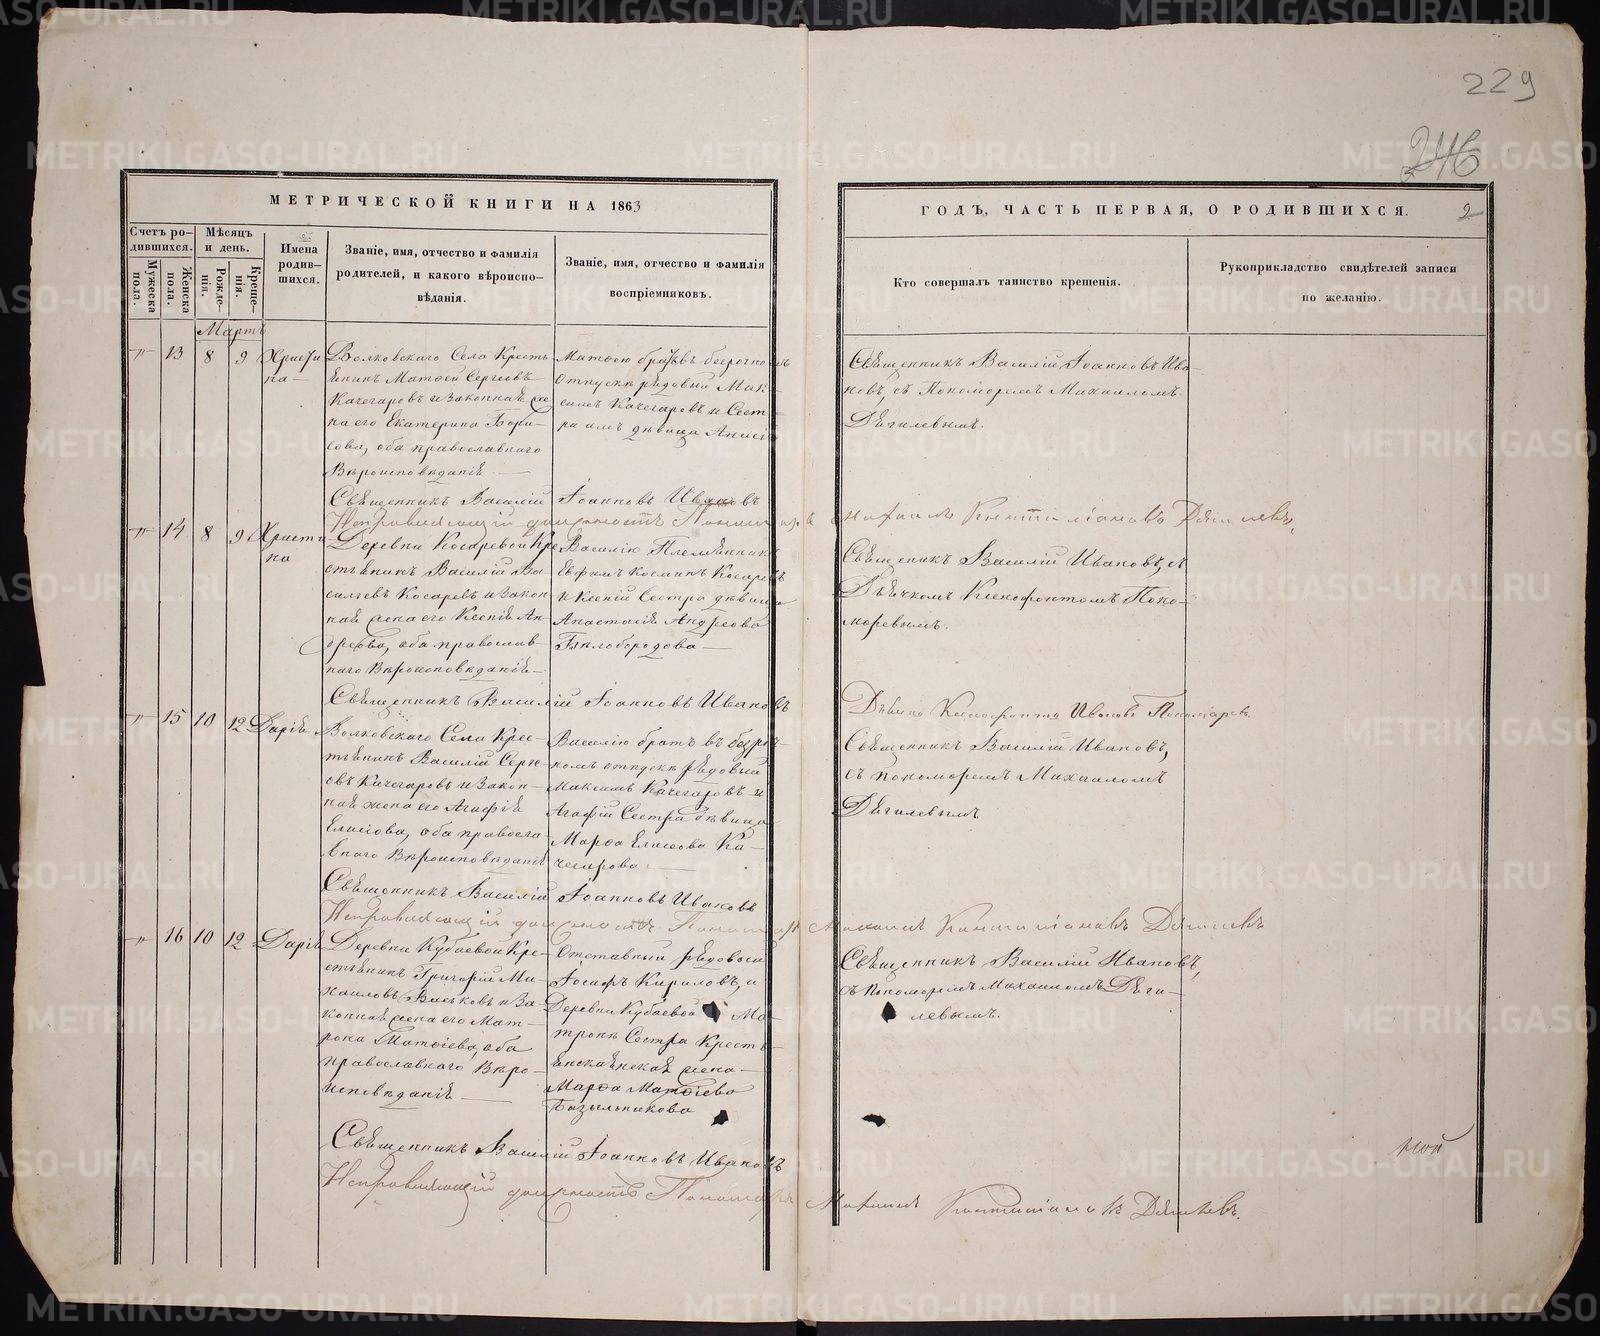 229
246
МЕТРИЧЕСКОЙ КНИГИ НА 1863
ГОДЪ, ЧАСТЬ ПЕРВАЯ, О РОДИВШИХСЯ.
2
Счетъ ро-
дившихся.
Мужеска
пола.
Женска
пола.
Мѣсяцъ
и день.
Рожде-
нія.
Креще-
нія.
Имена
родив-
шихся.
Званіе, имя, отчество и фамилія
родителей, и какого вѣроиспо-
вѣданія.
Званіе, имя, отчество и фамилія
воспріемниковъ.
Кто совершалъ таинство крещенія.
Рукоприкладство свидѣтелей записи
по желанію.
Мартъ
13 8 9 Христи
на
Волковскаго Села Кресть
янинъ Матѳей Сергѣевъ
Качегаровъ и законная же
на его Екатерина Бори-
сова, оба православнаго
Вѣроисповѣданія
Матѳею братъ въ безсрочномъ
отпуску рядовый Мак-
симъ Качегаровъ и Сест-
ра имъ дѣвица
Священникъ Василій Іоанновъ Ива-
новъ, съ Пономоремъ Михаиломъ
Дягилевымъ.
Священникъ Василій Іоанновъ Ивановъ
Исправляющій должность Пономаря Михаилъ Дягилевъ
14 8 9 Христи
на
Деревни Косаревой Кре
стьянинъ Василій Ва-
сильевъ Косаревъ и закон-
ная жена его Ксенія Ан-
дреева, оба православ-
наго Вѣроисповѣданія
Василію Племянникъ
Ефимъ Косминъ Косаревъ
и Ксеніи Сестра дѣвица
Анастасія Андреева
Бѣлобородова
Священникъ Василій Ивановъ, съ
Дьячкомъ Ксенофонтомъ Поно-
моревымъ.
Священникъ Василій Іоанновъ Ивановъ
Ксенофонтъ Ивановъ Пономаревъ
15 10 12 Дарія
Волковскаго Села Крес-
тьянинъ Василій Серге-
евъ Качегаровъ и закон-
ная жена его Агафія
Елисѣова, оба правосла-
внаго Вѣроисповѣданія
Василію братъ въ безроч-
номъ отпуску рядовый
Максимъ Качегаровъ и
Агафіи Сестра дѣвица
Марѳа Елисеова Ка-
чегарова
Священникъ Василій Ивановъ,
съ пономоремъ Михаиломъ
Дягилевымъ
Священникъ Василій Іоанновъ Ивановъ
Исправляющій должность Пономаря Михаилъ Дягилевъ
16 10 12 Дарія
Деревни Кубаевой Кре-
стьянинъ Григорій Ми-
хаиловъ и за-
конная жена его Мат-
рона Матѳіева, оба
православнаго Вѣро-
исповѣданія
Отставный рядовой
Іосифъ Кириловъ, и
Деревни Кубаевой Ма-
тронѣ Сестра Кресть-
янская жена
Марѳа Матѳіева
Базыльникова
Священникъ Василій Ивановъ,
съ пономоремъ Михаиломъ Дяги-
левымъ.
Священникъ Василій Іоанновъ Ивановъ
Исправляющій должность Пономаря Михаилъ Дягилевъ.